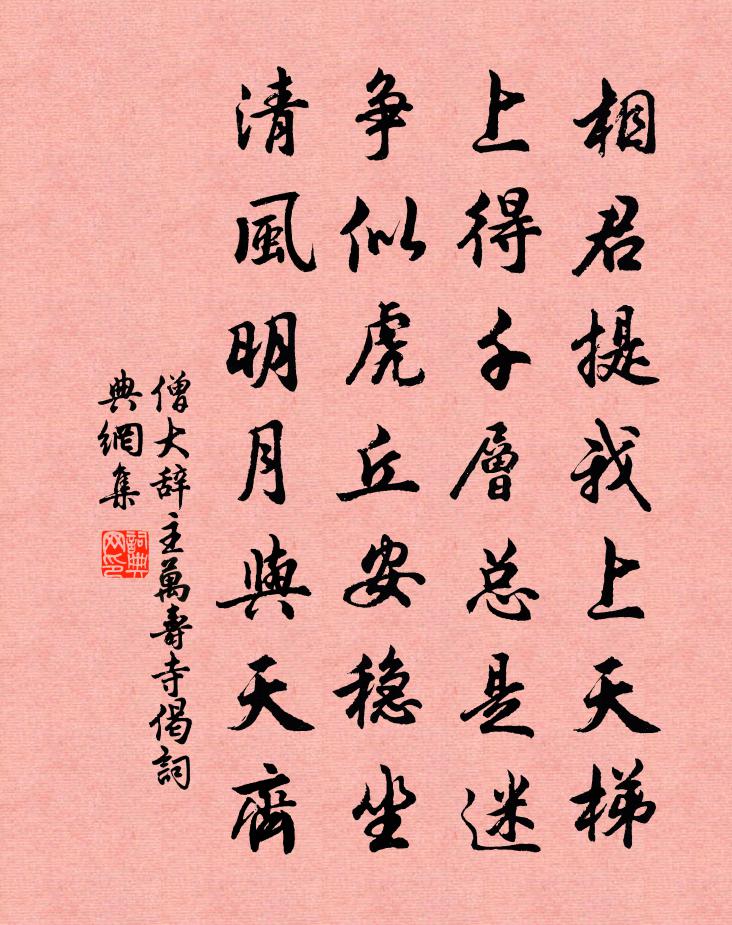 相君提我上天梯
上得千層总是迷
争似虎丘安稳坐
清風明月與天齊
僧大辞主萬壽寺偈詞
典網集
詞典
网印